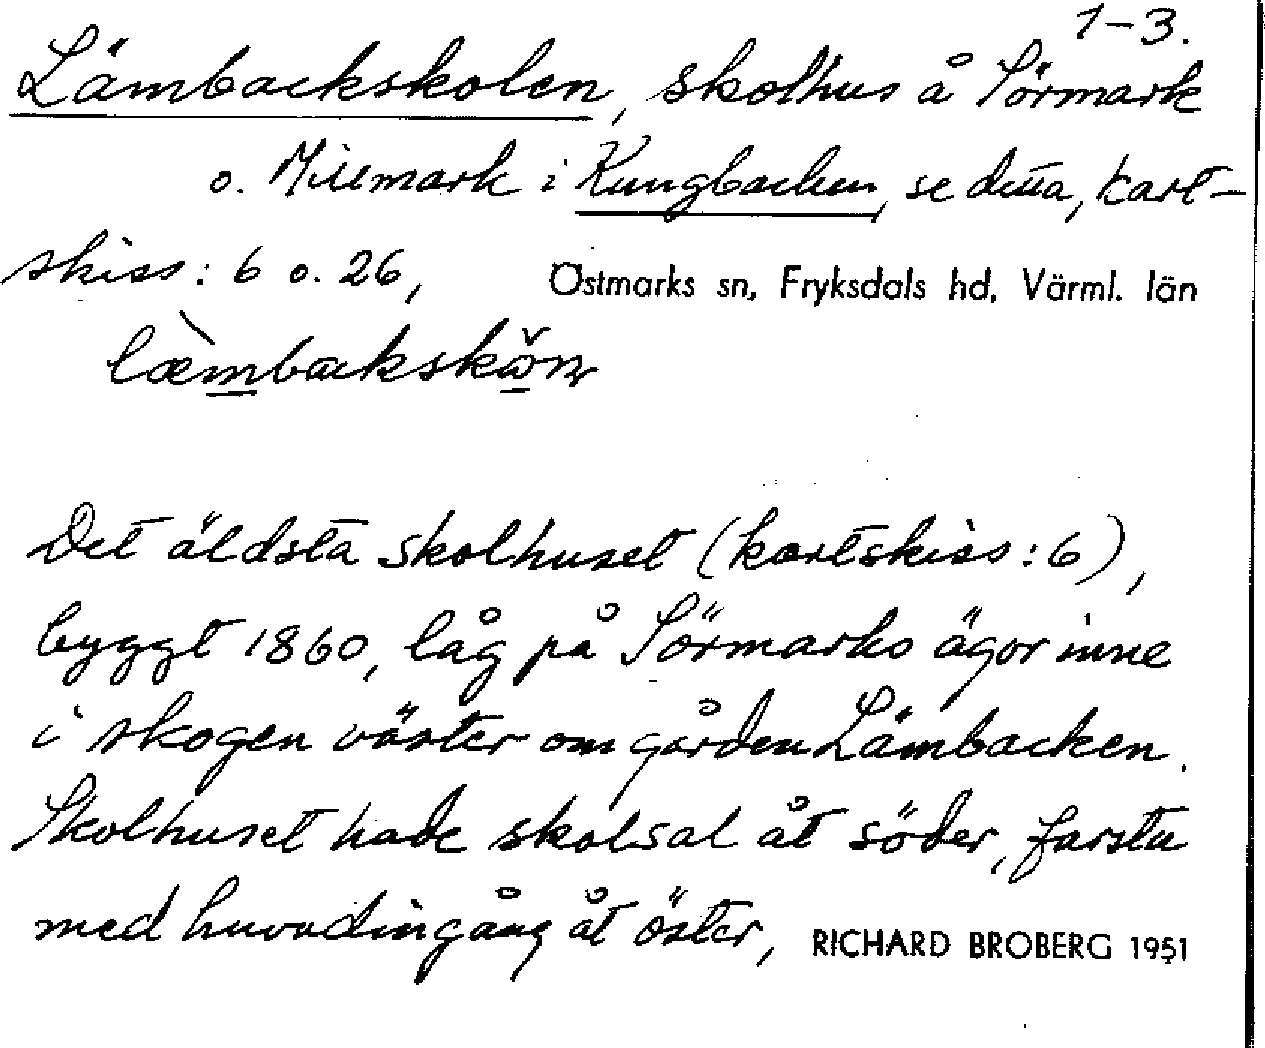 1-3.
Lämbackskolen, skolhus å Sörmark
o. Millmark i Kungbacken, se detta, kart-
skiss: 6 o. 26,
Östmarks sn, Fryksdals hd, Värml. län
Det äldsta skolhuset (kartskiss: 6),
byggt 1860, låg på Sörmarks ägor inne
i skogen väster om gården Lämbacken.
Skolhuset hade skolsal åt söder, farstu
med huvudingång åt öster,
RICHARD BROBERG 1951